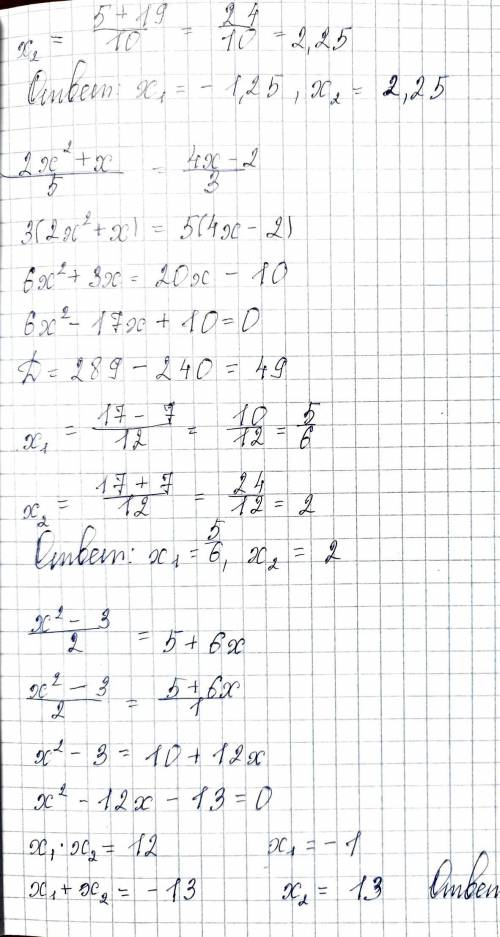 x₂ = (5 + 19)/10 = 24/10 = 2,25
Ответ: x₁ = - 1,25, x₂ = 2,25
(2x² + x)/5 = (4x - 2)/3
3(2x² + x) = 5(4x - 2)
6x² + 3x = 20x - 10
6x² - 17x + 10 = 0
D = 289 - 240 = 49
x₁ = (17 - 7)/12 = 10/12 = 5/6
x₂ = (17 + 7)/12 = 24/12 = 2
Ответ: x₁ = 5/6, x₂ = 2
(x² - 3)/2 = 5 + 6x
(x² - 3)/2 = (5 + 6x)/1
x² - 3 = 10 + 12x
x² - 12x - 13 = 0
x₁ · x₂ = 12 x₁ = - 1
x₁ + x₂ = - 13 x₂ = 13 Ответ